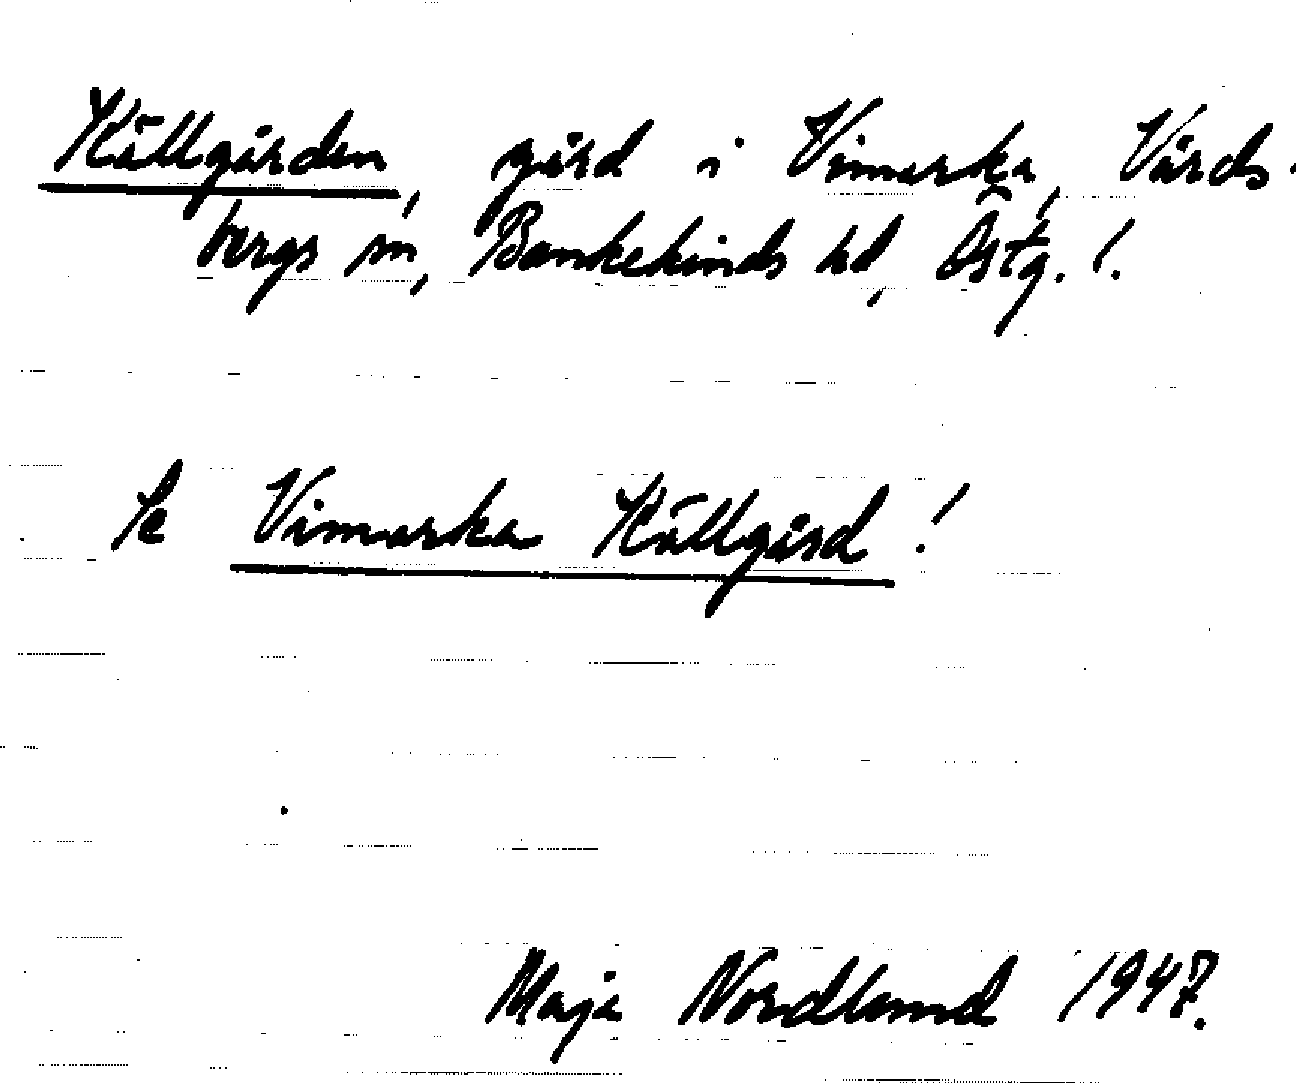 Källgården, gård i Vimarka, Vårds-
bergs sn, Bankekinds hd, Östg. l.
Se Vimarka Källgård!
Maja Nordlund 1947.